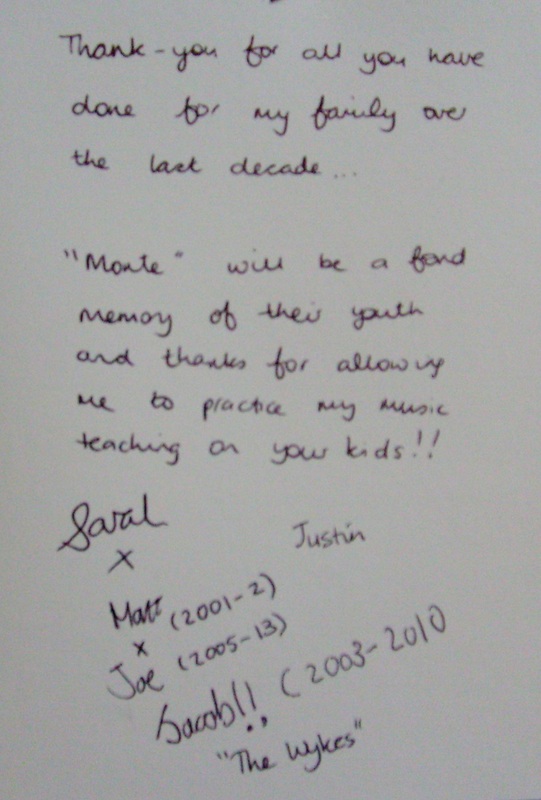 Thank-you for all you have
done for my family over
the last decade...
"Monte" will be a fond
memory of their youth
and thanks for allowing
me to practice my music
teaching on your kids!!
Sarah
x
Justin
Matt (2001-2)
x
Joe (2005-13)
Jacob!! (2003-2010
"The Wykes"